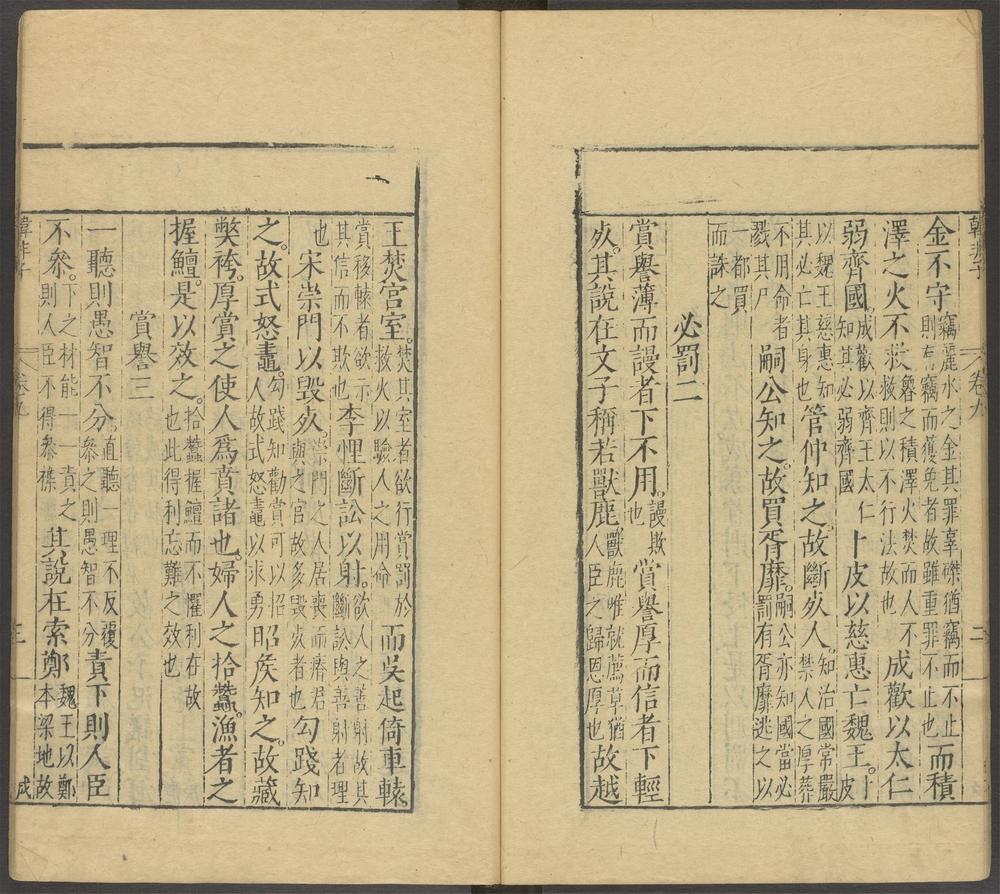 韓非子 卷九 二
金不守
竊麗水之金其罪辜磔猶竊而不止
則有竊而獲免者故雖重罪不止也
而積
澤之火不救
魯之積澤火焚而人不
救則以不行法故也
成歡以太仁
弱齊國。
成歡以齊王太仁
知其必弱齊國
卜皮以慈惠亡魏王。
卜
皮
以魏王慈惠知
其必亡其身也
管仲知之。故斷死人。
知治國常嚴
禁人之厚葬
不用命者
戮其尸
嗣公知之。故買胥靡。
嗣公亦知國當必
罰有胥靡逃之以
一都買
而誅之
必罰二
賞譽薄而謾者下不用。
謾欺
也
賞譽厚而信者下輕
死。其說在文子稱若獸鹿。
獸鹿唯就薦草猶
人臣之歸恩厚也
故越
王焚宮室。
焚其室者欲行賞罰於
救火以驗人之用命
而吳起倚車轅。
賞移轅者欲示
其信而不欺也
李悝斷訟以射。
欲人之善射故其
斷訟與善射者理
也
宋崇門以毀死。
崇門之人居喪而瘠君
與之官故多毀死者也
勾踐知
之。故式怒鼃。
勾踐知勸賞可以招
人故式怒鼃以求勇
昭侯知之。故藏
弊袴。厚賞之使人爲賁諸也。婦人之拾蠶。漁者之
握鱣。是以效之。
拾蠶握鱣而不懼利在故
也此得利忘難之效也
賞譽三
一聽則愚智不分。
直聽一理不反覆
參之則愚智不分
責下則人臣
不參。
下之材能一一責之
則人臣不得參襍
其說在索鄭
魏王以鄭
本梁地故
韓非子 卷九 三 成